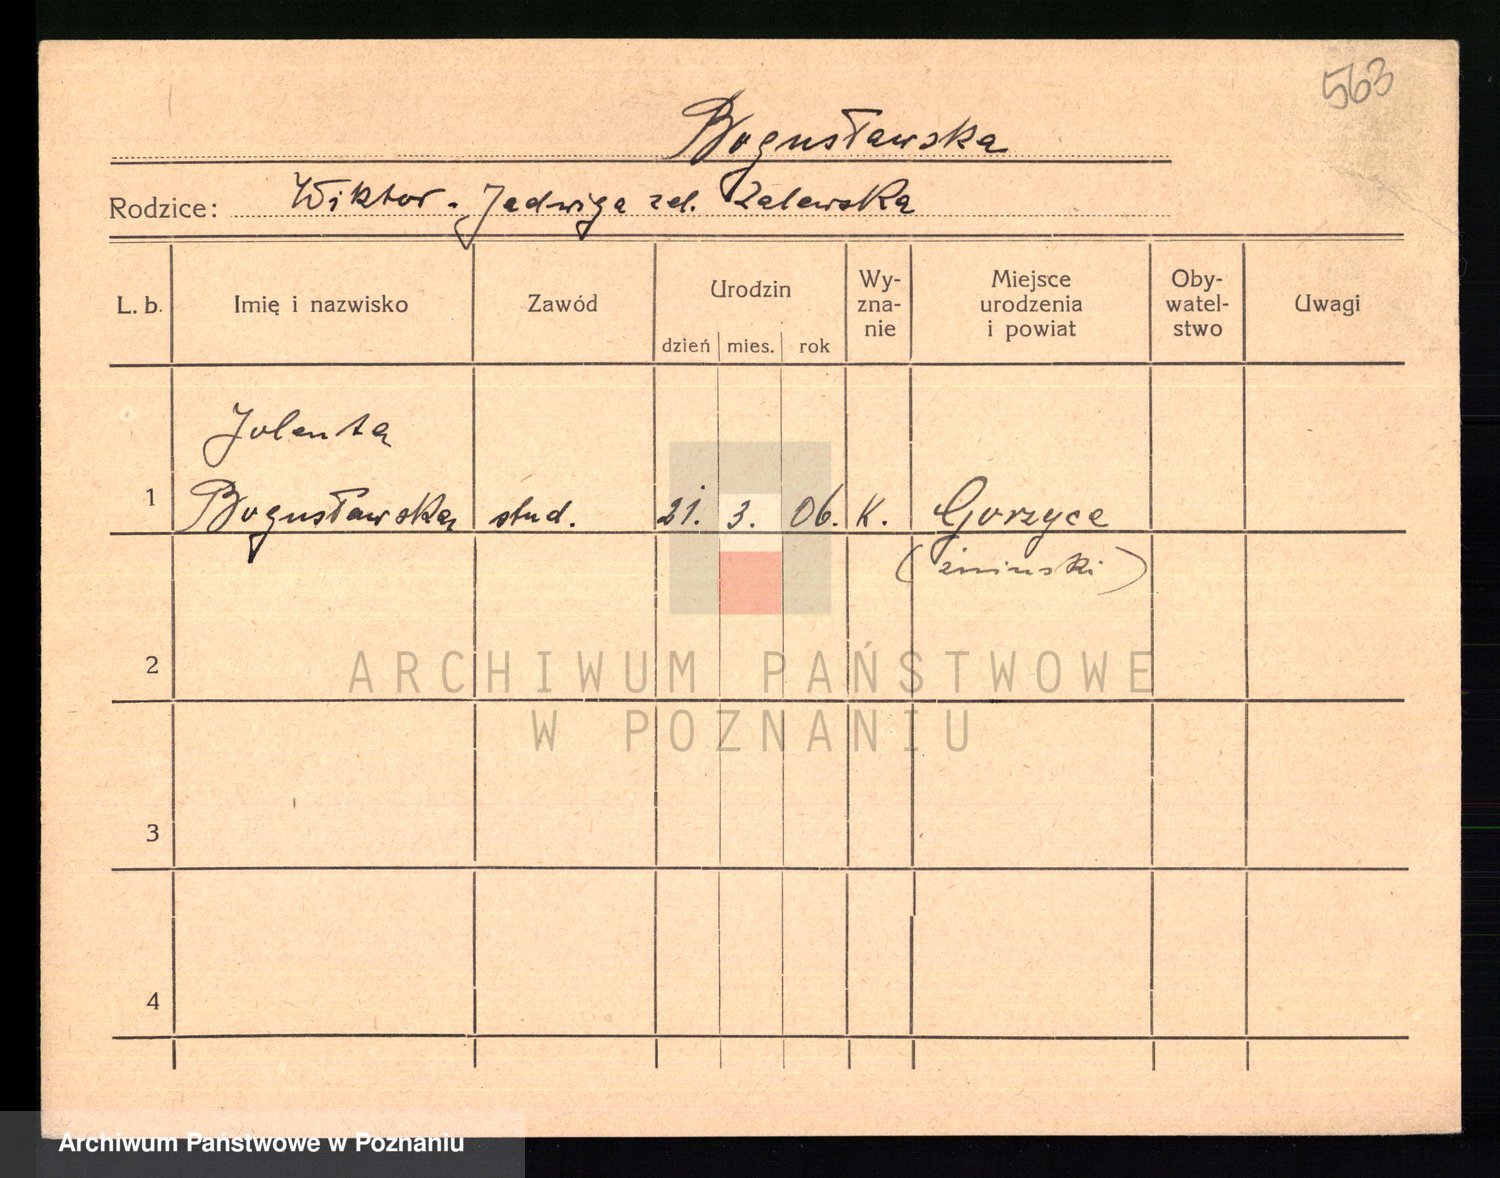 563
Bogusławska
Rodzice: Wiktor - Jadwiga zd. Zalewska
L. b. Imię i nazwisko Zawód Urodzin dzień mies. rok Wy-zna-nie Miejsce urodzenia i powiat Oby-watel-stwo Uwagi
Jolenta
1 Bogusławska stud. 21. 3. 06. K. Gorzyce
(żninski)
2
3
4
ARCHIWUM PAŃSTWOWE
W POZNANIU
Archiwum Państwowe w Poznaniu